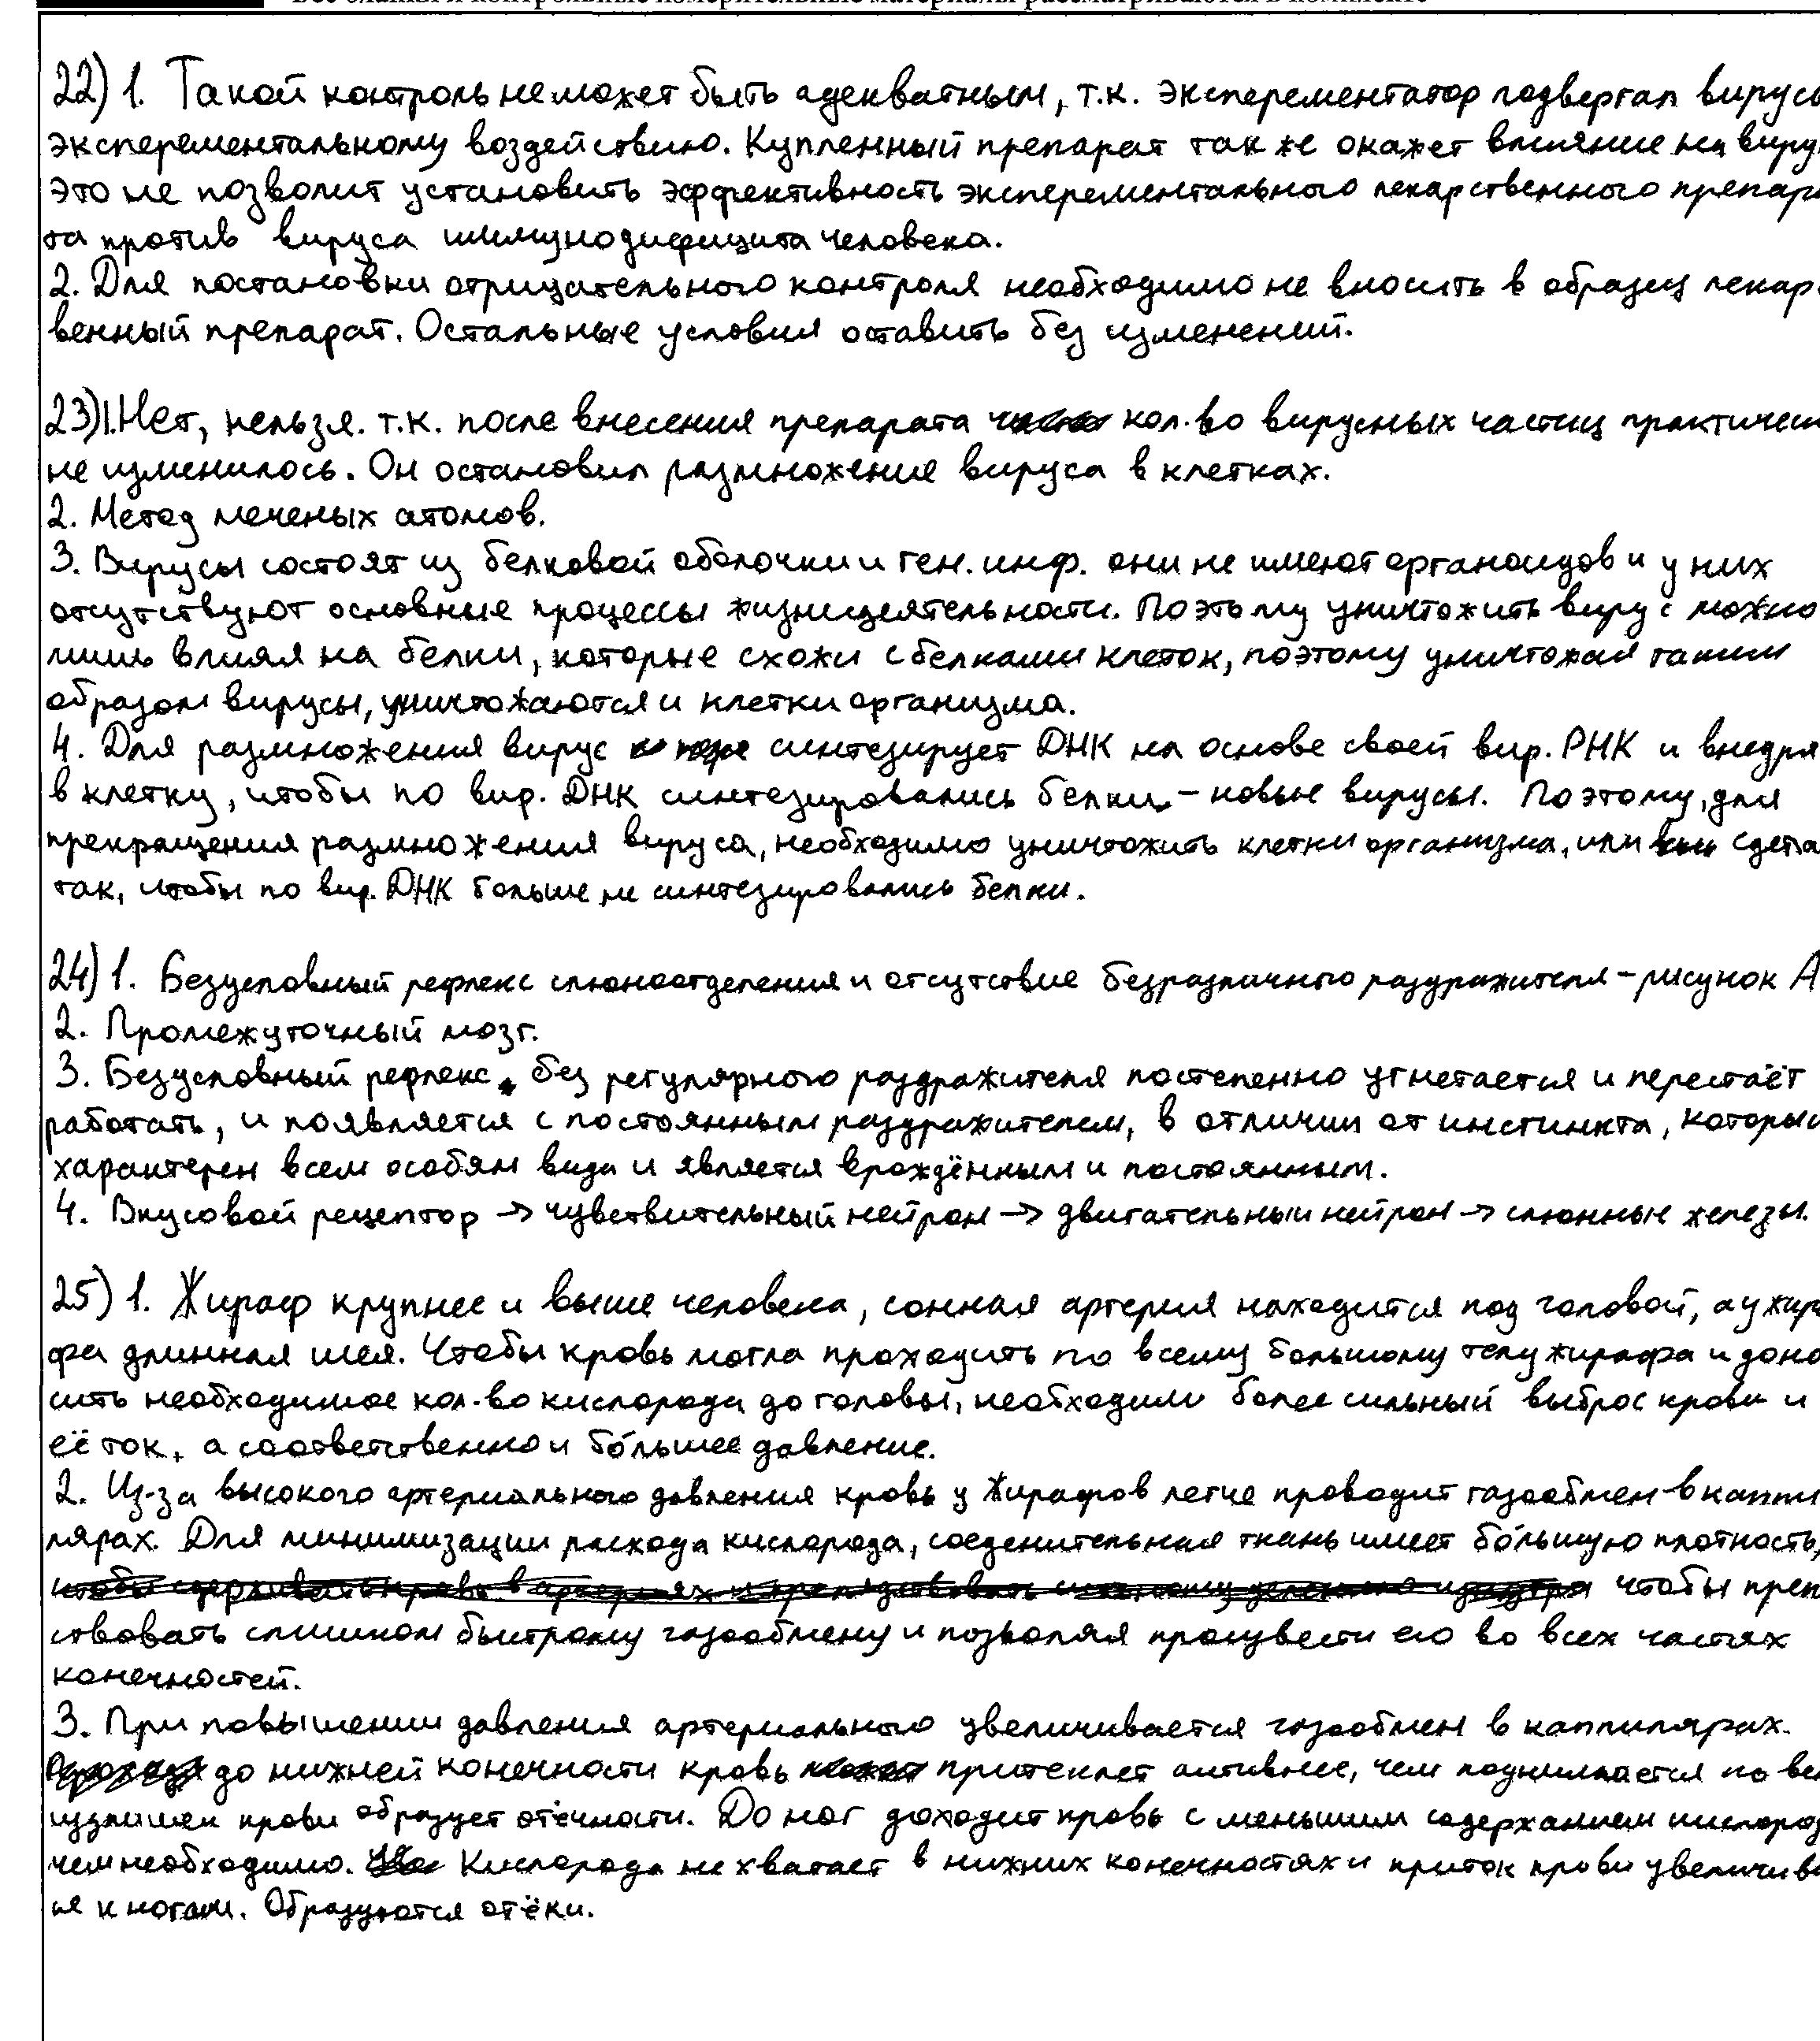 Все бланки и контрольные измерительные материалы рассматриваются в комплекте
22) 1. Такой контроль не может быть адекватным, т.к. эксперементатор подвергал вирусы
эксперементальному воздействию. Купленный препарат так же окажет влияние на виру
это не позволит установить эффективность эксперементального лекарственного препара
та против вируса иммунодифицита человека.
2. Для постановки отрицательного контроля необходимо не вносить в образец лекар
венный препарат. Остальные условия оставить без изменений.
23) 1. Нет, нельзя. т.к. после внесения препарата кол.во вирусных частиц практичес
не изменилось. Он остановил размножение вируса в клетках.
2. Метод меченых атомов.
3. Вирусы состоят из белковой оболочки и ген. инф. они не имеют органоидов и у них
отсутствуют основные процессы жизнидеятельности. Поэтому уничтожить вирус можно
лишь влияя на белки, которые схожи с белками клеток, поэтому уничтожая таким
образом вирусы, уничтожаются и клетки организма.
4. Для размножения вирус синтезирует ДНК на основе своей вир. РНК и внедря
в клетку, чтобы по вир. ДНК синтезировались белки - новые вирусы. Поэтому, для
прекращения размножения вируса, необходимо уничтожить клетки организма, или сдела
так, чтобы по вир. ДНК больше не синтезировались белки.
24) 1. Безусловный рефлекс слюноотделения и отсутствие безразличного раздражителя - рисунок А
2. Промежуточный мозг.
3. Безусловный рефлекс без регулярного раздражителя постепенно угнетается и перестаёт
работать, и появляется с постоянным раздражителем, в отличии от инстинкта, который
характерен всем особям вида и является врождённым и постоянным.
4. Вкусовой рецептор → чувствительный нейрон → двигательный нейрон → слюнные железы.
25) 1. Жираф крупнее и выше человека, сонная артерия находится под головой, а у жира
фа длинная шея. Чтобы кровь могла проходить по всему большому телу жирафа и доно
сить необходимое кол-во кислорода до головы, необходим более сильный выброс крови и
её ток, а соответственно и бо́льшее давление.
2. Из-за высокого артериального давления кровь у жирафов легче проводит газообмен в капи
лярах. Для минимизации расхода кислорода, соеденительная ткань имеет бо́льшую плотность,
чтобы преп
ствовать слишком быстрому газообмену и позволяя произвести его во всех частях
конечностей.
3. При повышении давления артериального увеличивается газообмен в каппилярах.
до нижней конечности кровь притекает активнее, чем поднимается по ве
излишек крови образует отёчности. До ног доходит кровь с меньшим содержанием кислород
чем необходимо. Кислорода не хватает в нижних конечностях и приток крови увеличива
ся к ногам. Образуются отёки.